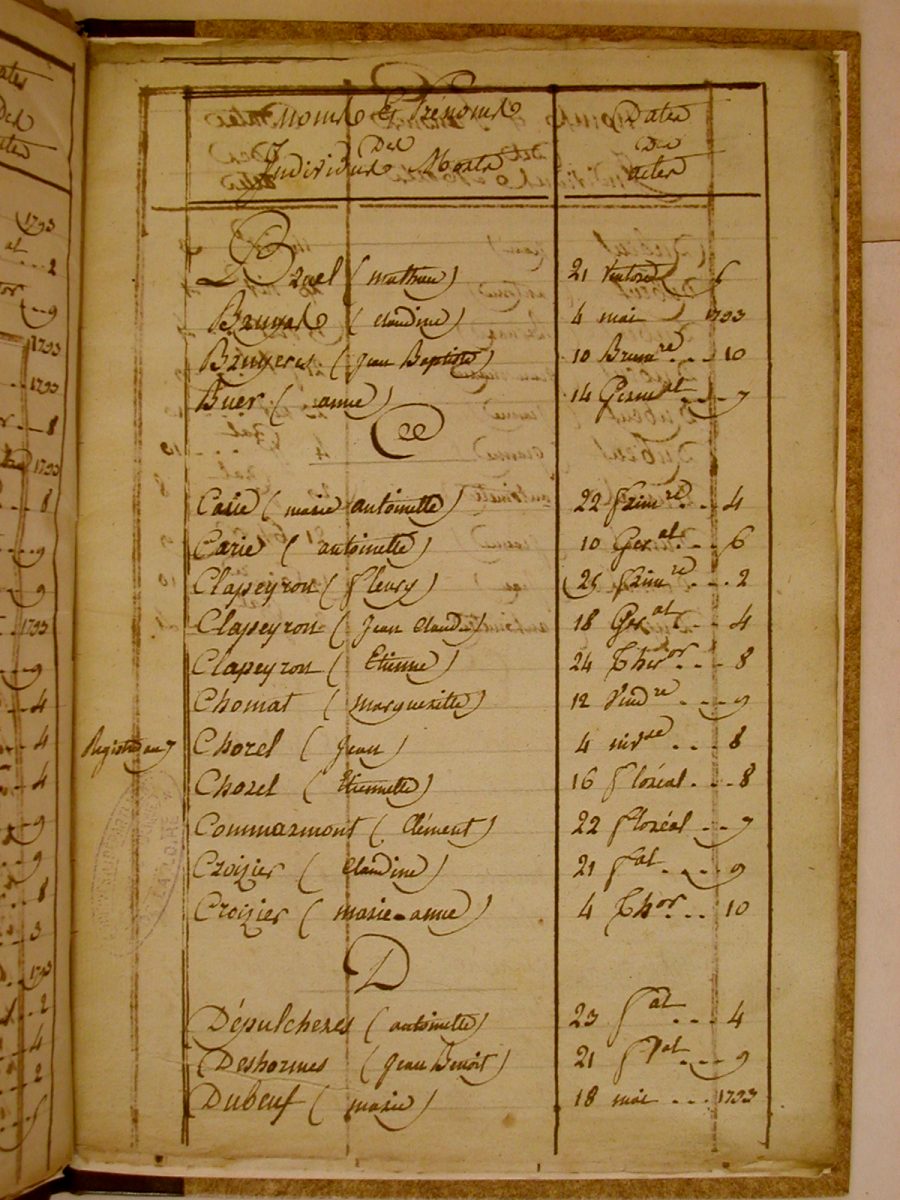 Noms Et Prénoms
Des
Individus Morts
Dates
Des
actes
Bruel (mathieu) 21 Ventose 6
Bruyas (Claudine) 4 mai 1793
Bruyeres (Jean Baptiste) 10 Brumre ... 10
Buer (anne) 14 Germal ... 7
C
Carie (marie antoinette) 22 frimre ... 4
Carie (antoinette) 10 Geral ... 6
Clapeyron (fleury) 25 frimre ... 2
Clapeyron (Jean Claude) 18 Geral ... 4
Clapeyron (Etienne) 24 Theror ... 8
Chomat (margueritte) 12 Vindre ... 9
Registre an 7
Chorel (Jean) 4 nivse ... 8
Chorel (Etiennette) 16 floréal ... 8
Commarmont (Clément) 22 floréal ... 7
Croizier (Claudine) 21 fal ... 9
Croizier (marie-anne) 4 Thor ... 10
D
Dépulcheres (antoinette) 23 fal ... 4
Deshormes (Jean Benoit) 21 flal ... 9
Dubeuf (marie) 18 mai ... 1793
LOIRE